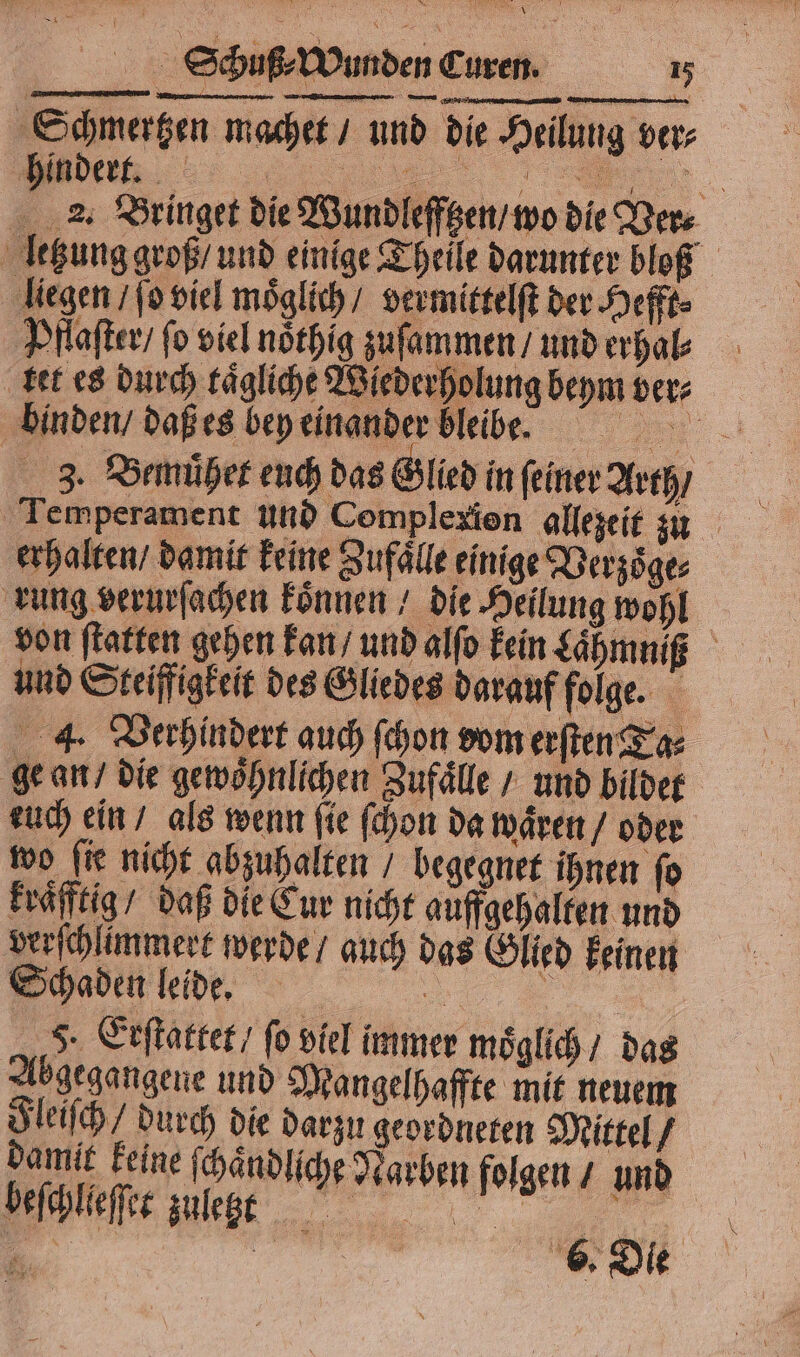 Schuß-Wunden Curen. 15
Schmertzen machet / und die Heilung ver-
hindert.
2. Bringet die Wundlefftzen / wo die Ver-
letzung groß / und einige Theile darunter bloß
liegen / ſo viel moͤglich / vermittelſt der Hefft-
Pflaſter / ſo viel noͤthig zuſammen / und erhal-
tet es durch taͤgliche Wiederholung beym ver-
binden / daß es bey einander bleibe.
3. Bemuͤhet euch das Glied in ſeiner Arth /
Temperament und Complexion allezeit zu
erhalten / damit keine Zufaͤlle einige Verzoͤge-
rung verurſachen koͤnnen / die Heilung wohl
von ſtatten gehen kan / und alſo kein Laͤhmniß
und Steiffigkeit des Gliedes darauf folge.
4. Verhindert auch ſchon vom erſten Ta-
ge an / die gewoͤhnlichen Zufaͤlle / und bildet
euch ein / als wenn ſie ſchon da waͤren / oder
wo ſie nicht abzuhalten / begegnet ihnen ſo
kraͤfftig / daß die Cur nicht auffgehalten und
verſchlimmert werde / auch das Glied keinen
Schaden leide.
5. Erſtattet / ſo viel immer moͤglich / das
Abgegangene und Mangelhaffte mit neuem
Fleiſch / durch die darzu geordneten Mittel /
damit keine ſchaͤndliche Narben folgen / und
beſchlieſſet zuletzt
6. Die